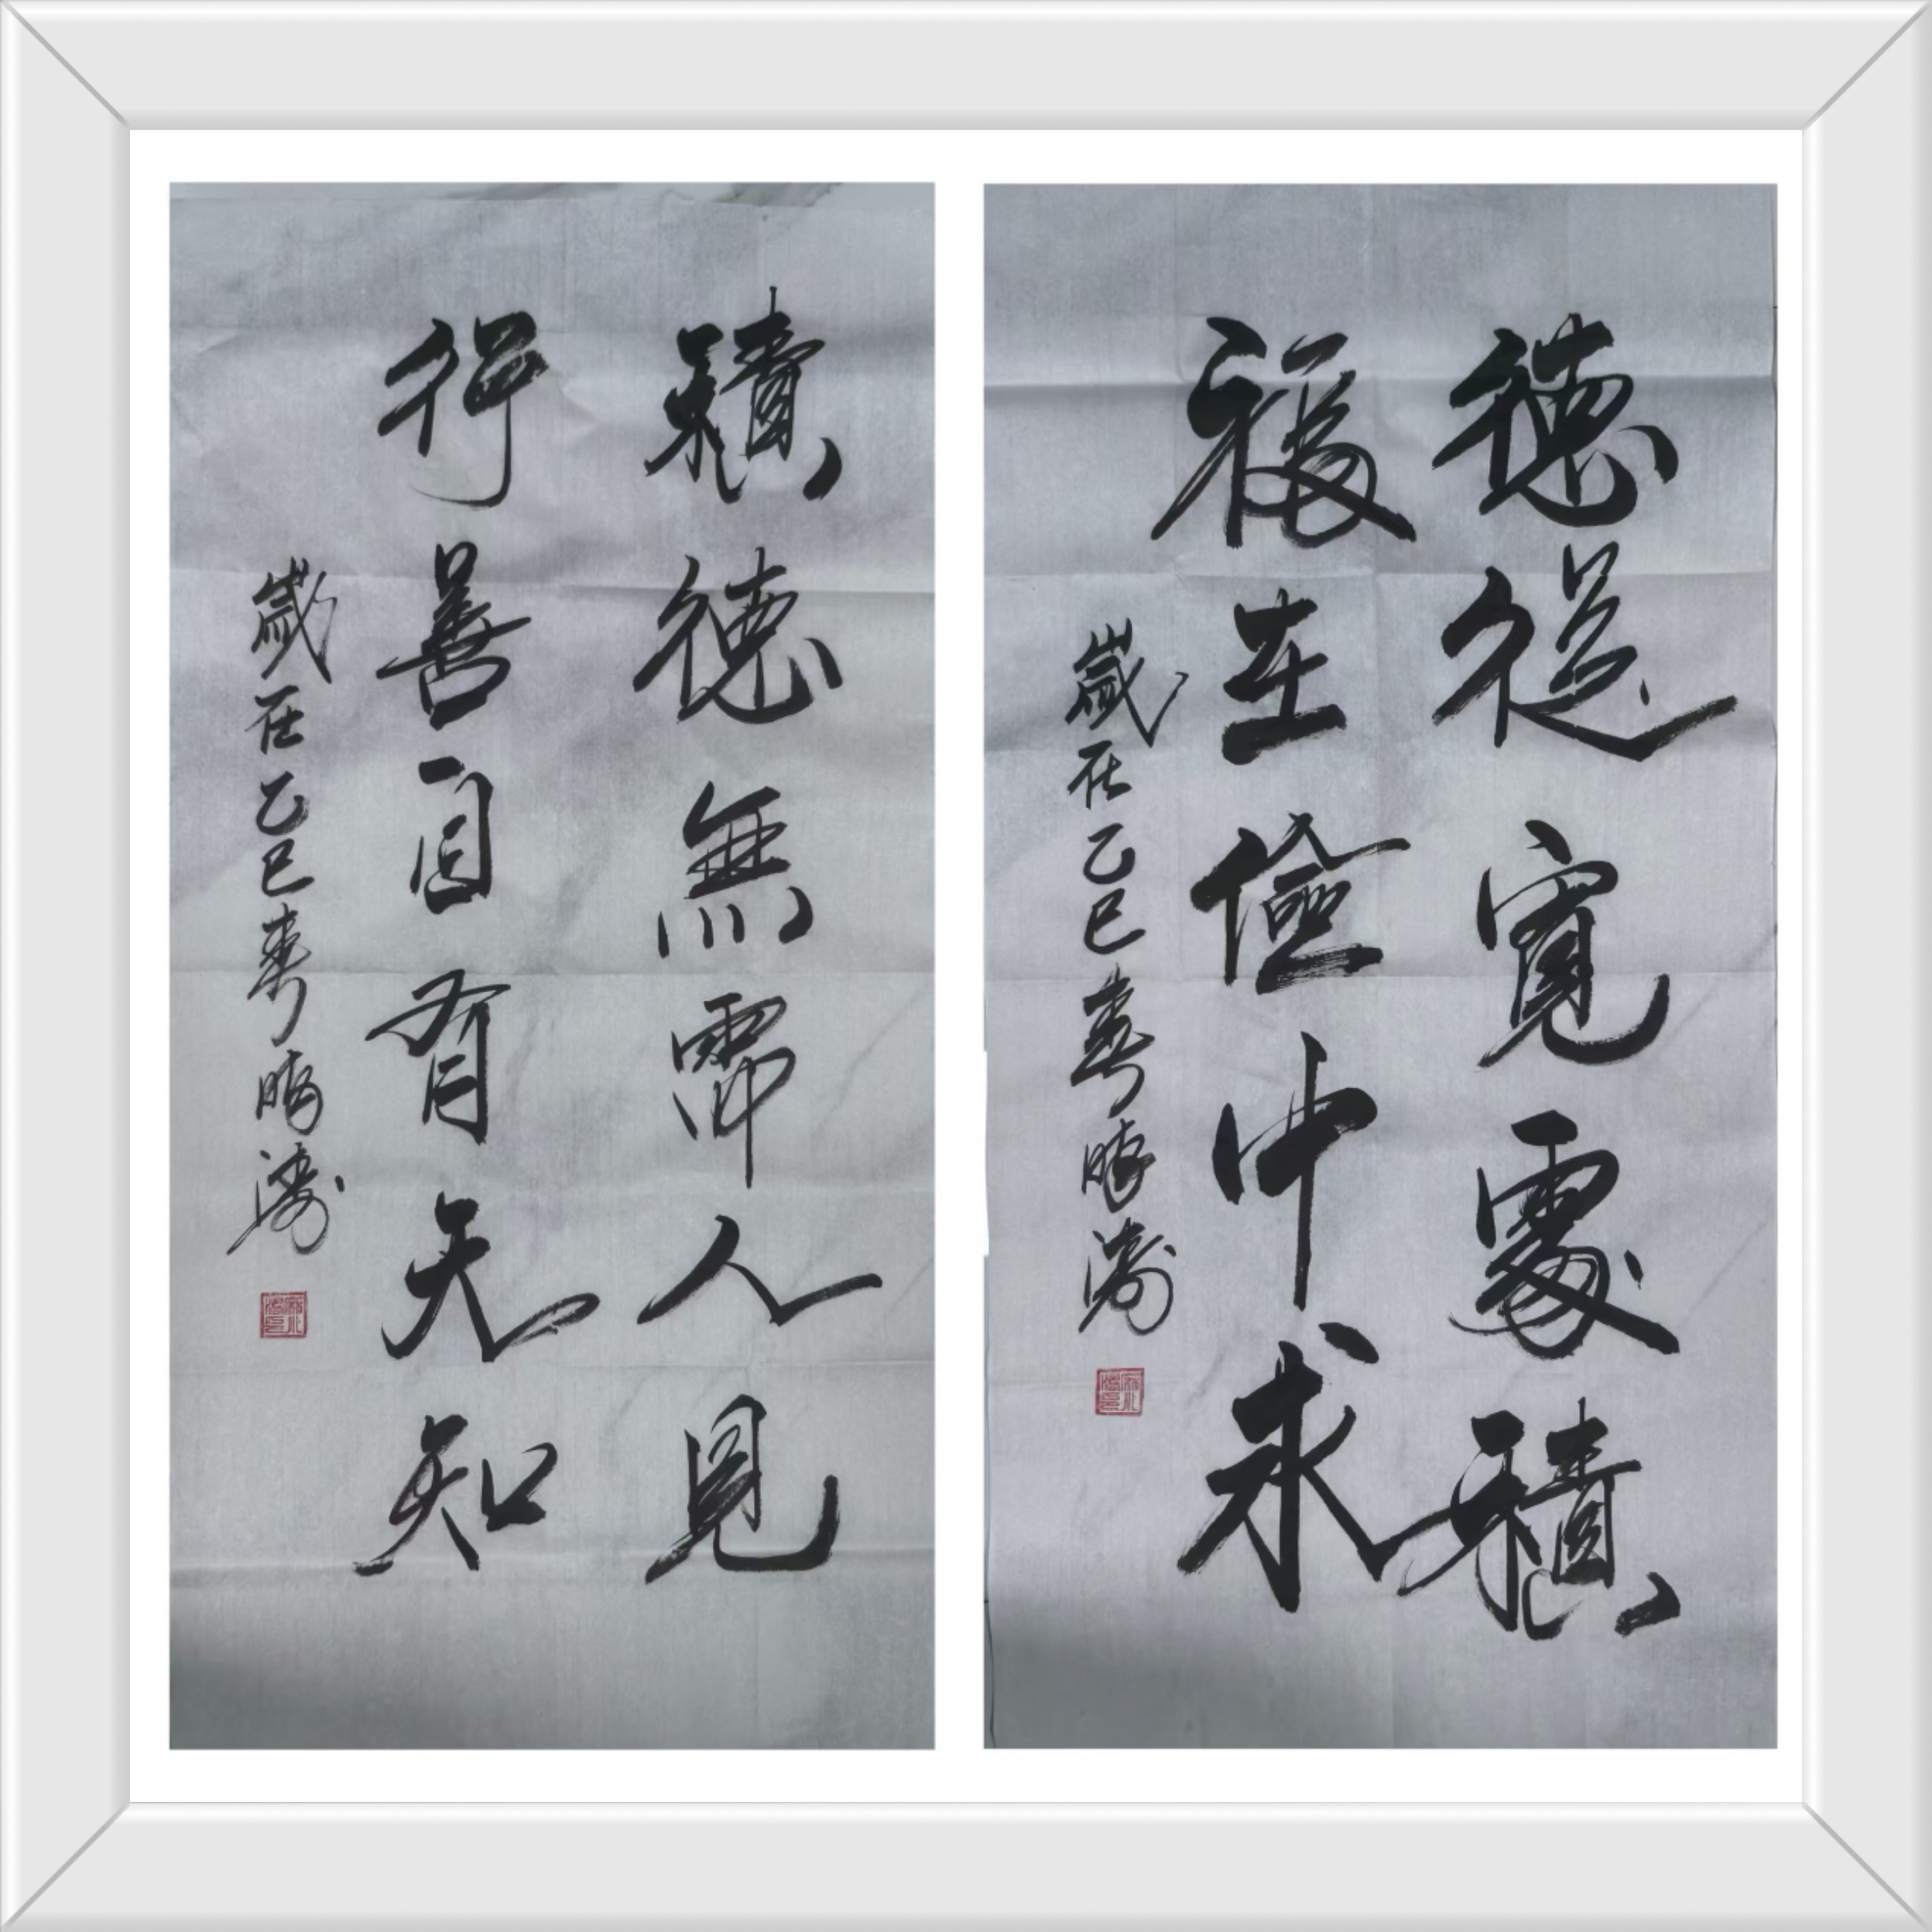 德從寬處積
福在儉中求
歲在乙巳春
積德無需人見
行善自有天知
歲在乙巳春